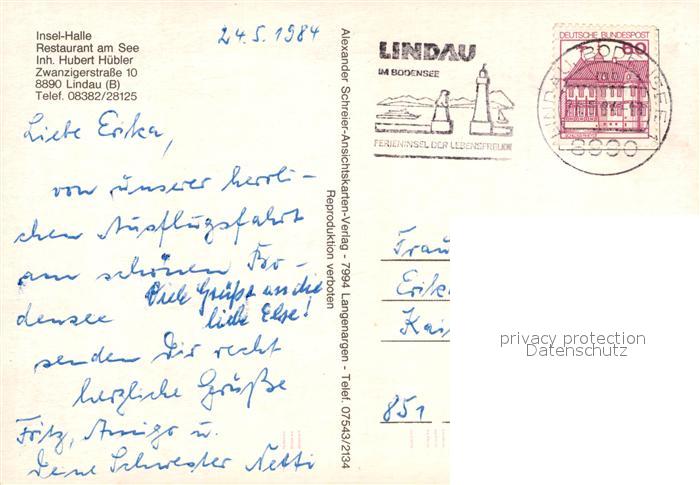 Insel-Halle
Restaurant am See
Inh. Hubert Hübler
Zwanzigerstraße 10
8890 Lindau (B)
Telef. 08382/28125
24.5.1984
Liebe Erika,
von unserer herrli-
chen Ausflugsfahrt
am schönen Bo-
densee
Viele Grüße an die
liebe Else!
senden Dir recht
herzliche Grüße
Fritz, Amigo u.
Deine Schwester Netti
Alexander Schreier-Ansichtskarten-Verlag - 7994 Langenargen - Telef. 07543/2134
Reproduktion verboten
LINDAU
IM BODENSEE
FERIENINSEL DER LEBENSFREUDE
DEUTSCHE BUNDESPOST
60
LINDAU, BODENSEE
8990
Frau
Erika
Kai
851
privacy protection
Datenschutz